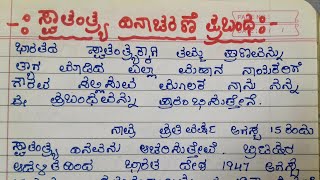 -: ಸ್ವಾತಂತ್ರ್ಯ ದಿನಾಚರಣೆ ಪ್ರಬಂಧ :-
ಭಾರತದ ಸ್ವಾತಂತ್ರ್ಯಕ್ಕಾಗಿ ತಮ್ಮ ಪ್ರಾಣವನ್ನು
ತ್ಯಾಗ ಮಾಡಿದ ಎಲ್ಲಾ ಮಹಾನ ನಾಯಕರಿಗೆ
ಗೌರವ ಸಲ್ಲಿಸುವ ಮೂಲಕ ನಾನು ನನ್ನ
ಈ ಪ್ರಬಂಧವನ್ನು ಪ್ರಾರಂಭಿಸುತ್ತೇನೆ.
ನಾವು ಪ್ರತಿ ವರ್ಷ ಆಗಸ್ಟ 15 ರಂದು
ಸ್ವಾತಂತ್ರ್ಯ ದಿನವನು ಆಚರಿಸುತ್ತೇವೆ. ಬ್ರಿಟಿಷರ
ಆಡಳಿತದಿಂದ ಭಾರತ ದೇಶ 1947 ಆಗಸ್ಟ